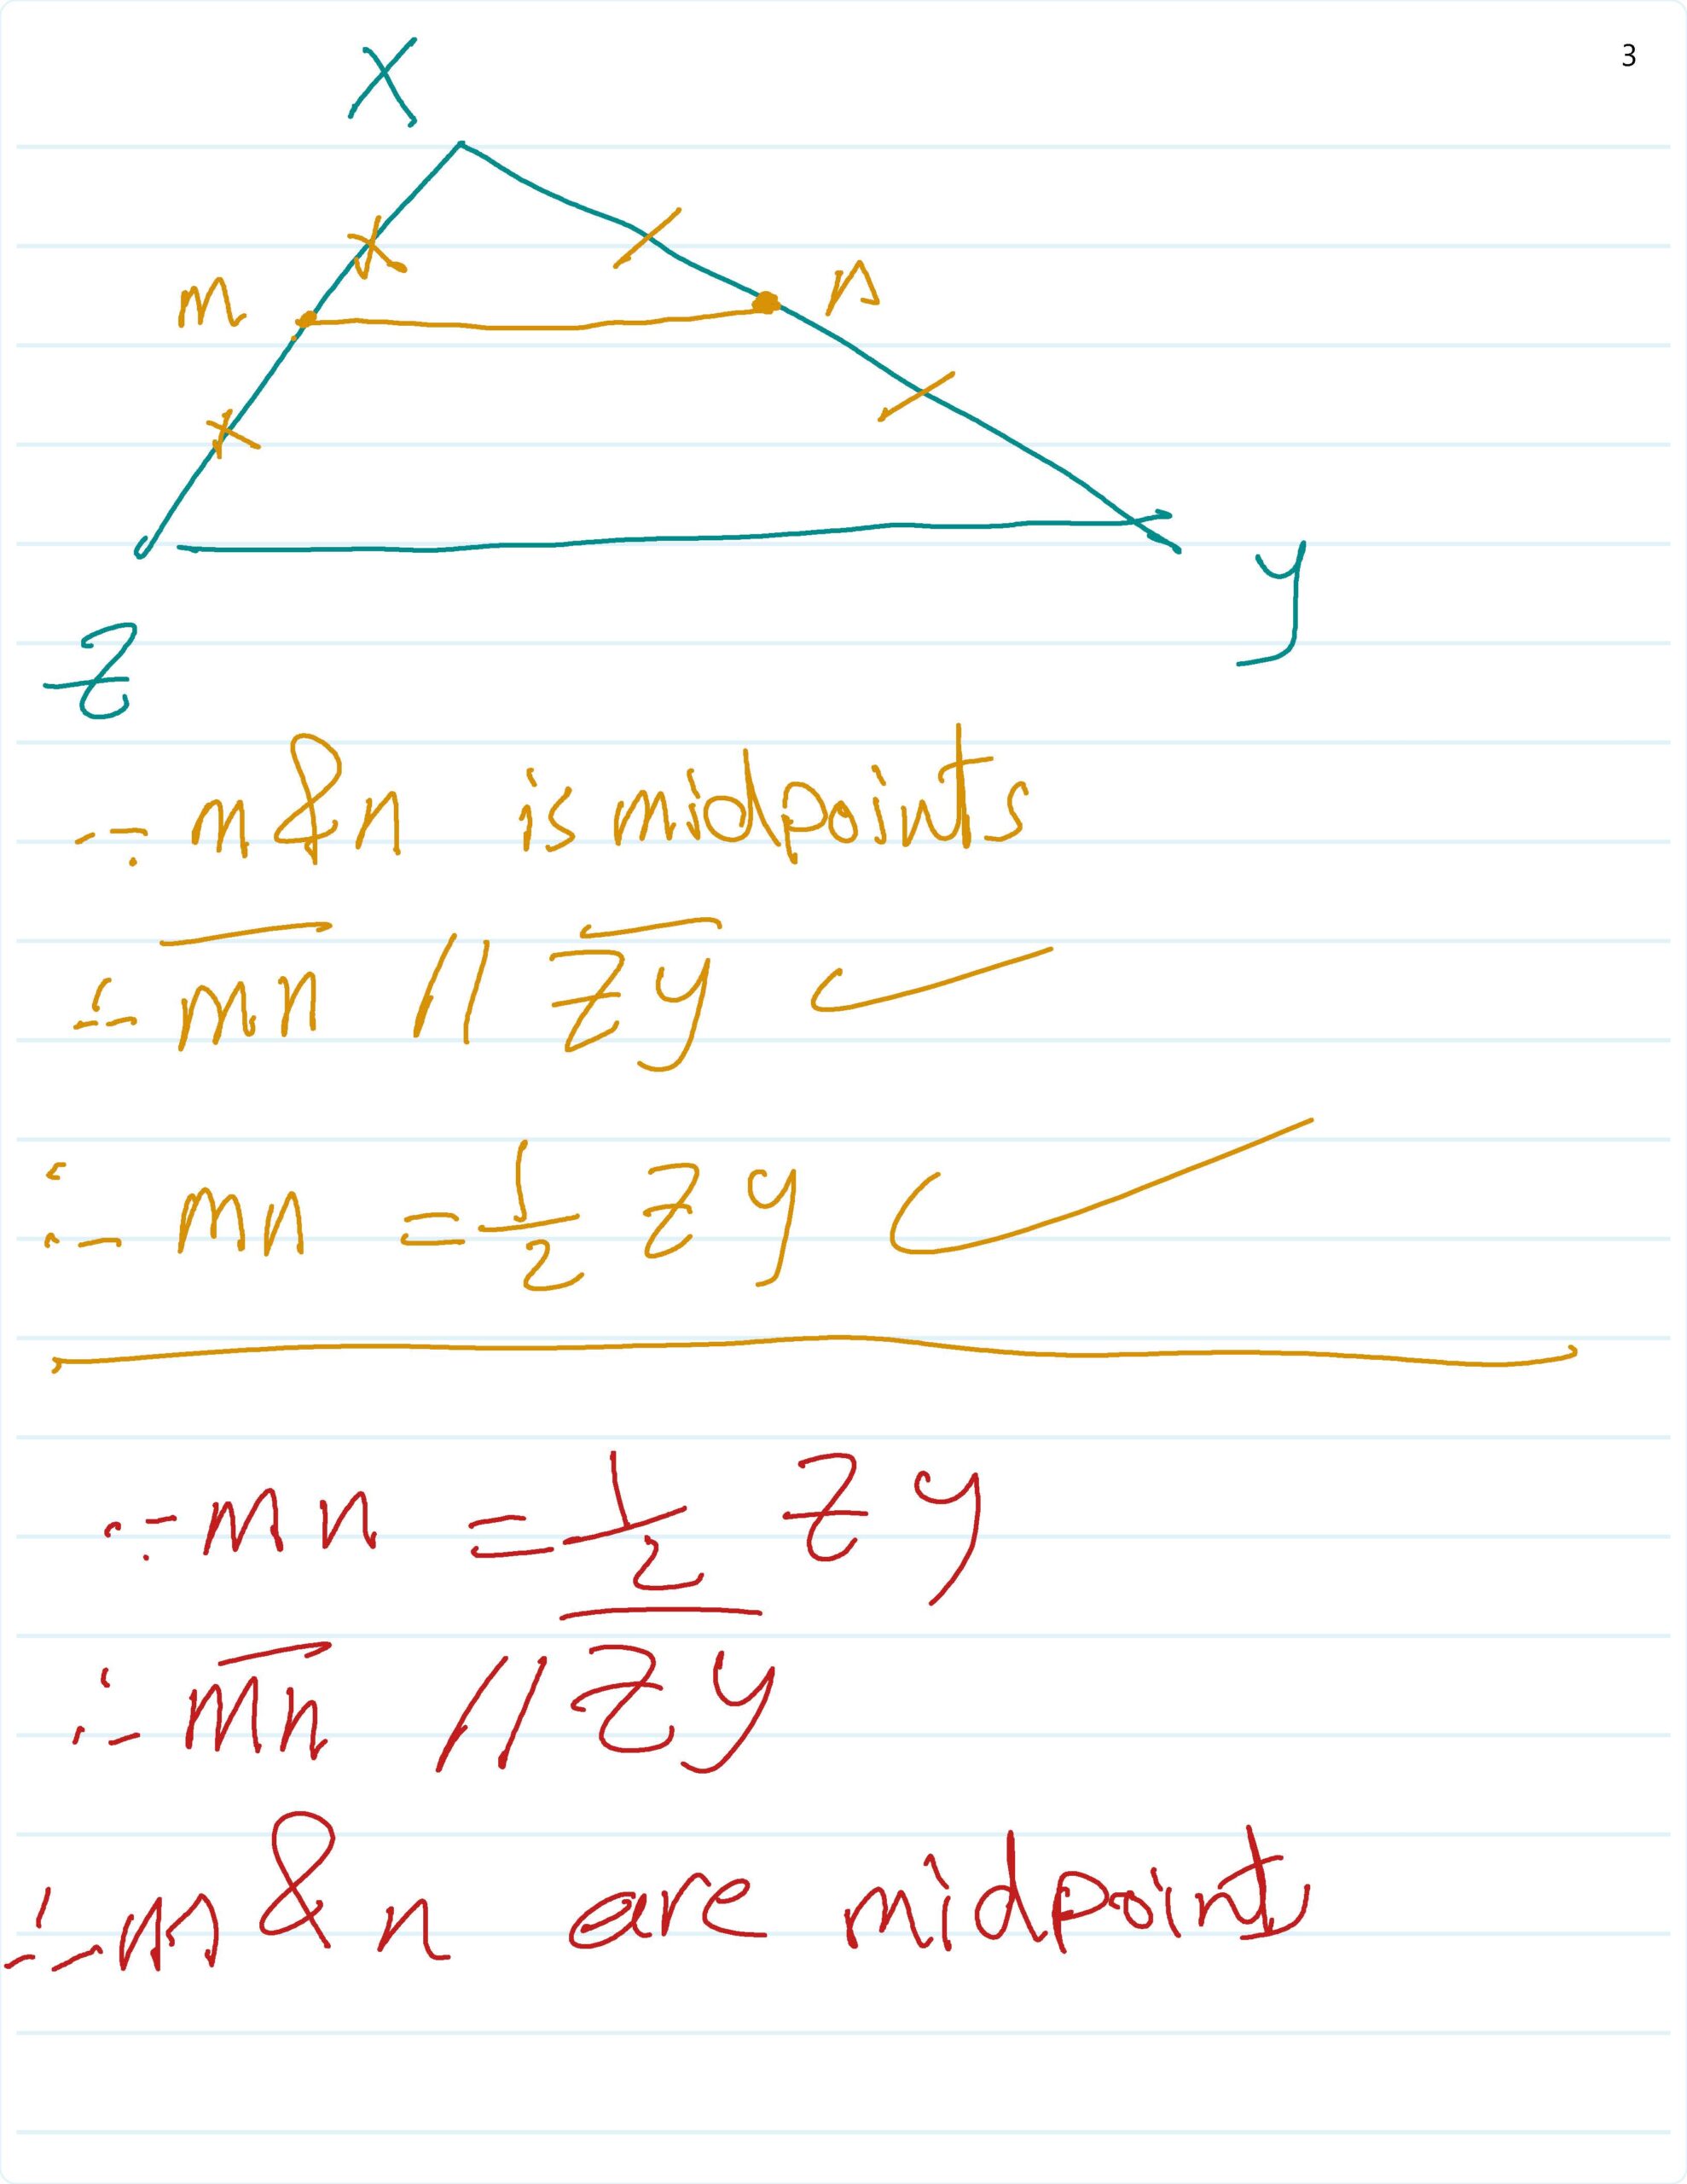 3
X
m
n
y
Z
∵ m & n is midpoints
∴ \overline{mn} // \overline{Zy}
∴ mn = \frac{1}{2} Zy
∵ mn = \frac{1}{2} Zy
∴ \overline{mn} // \overline{Zy}
∴ m & n are midpoint